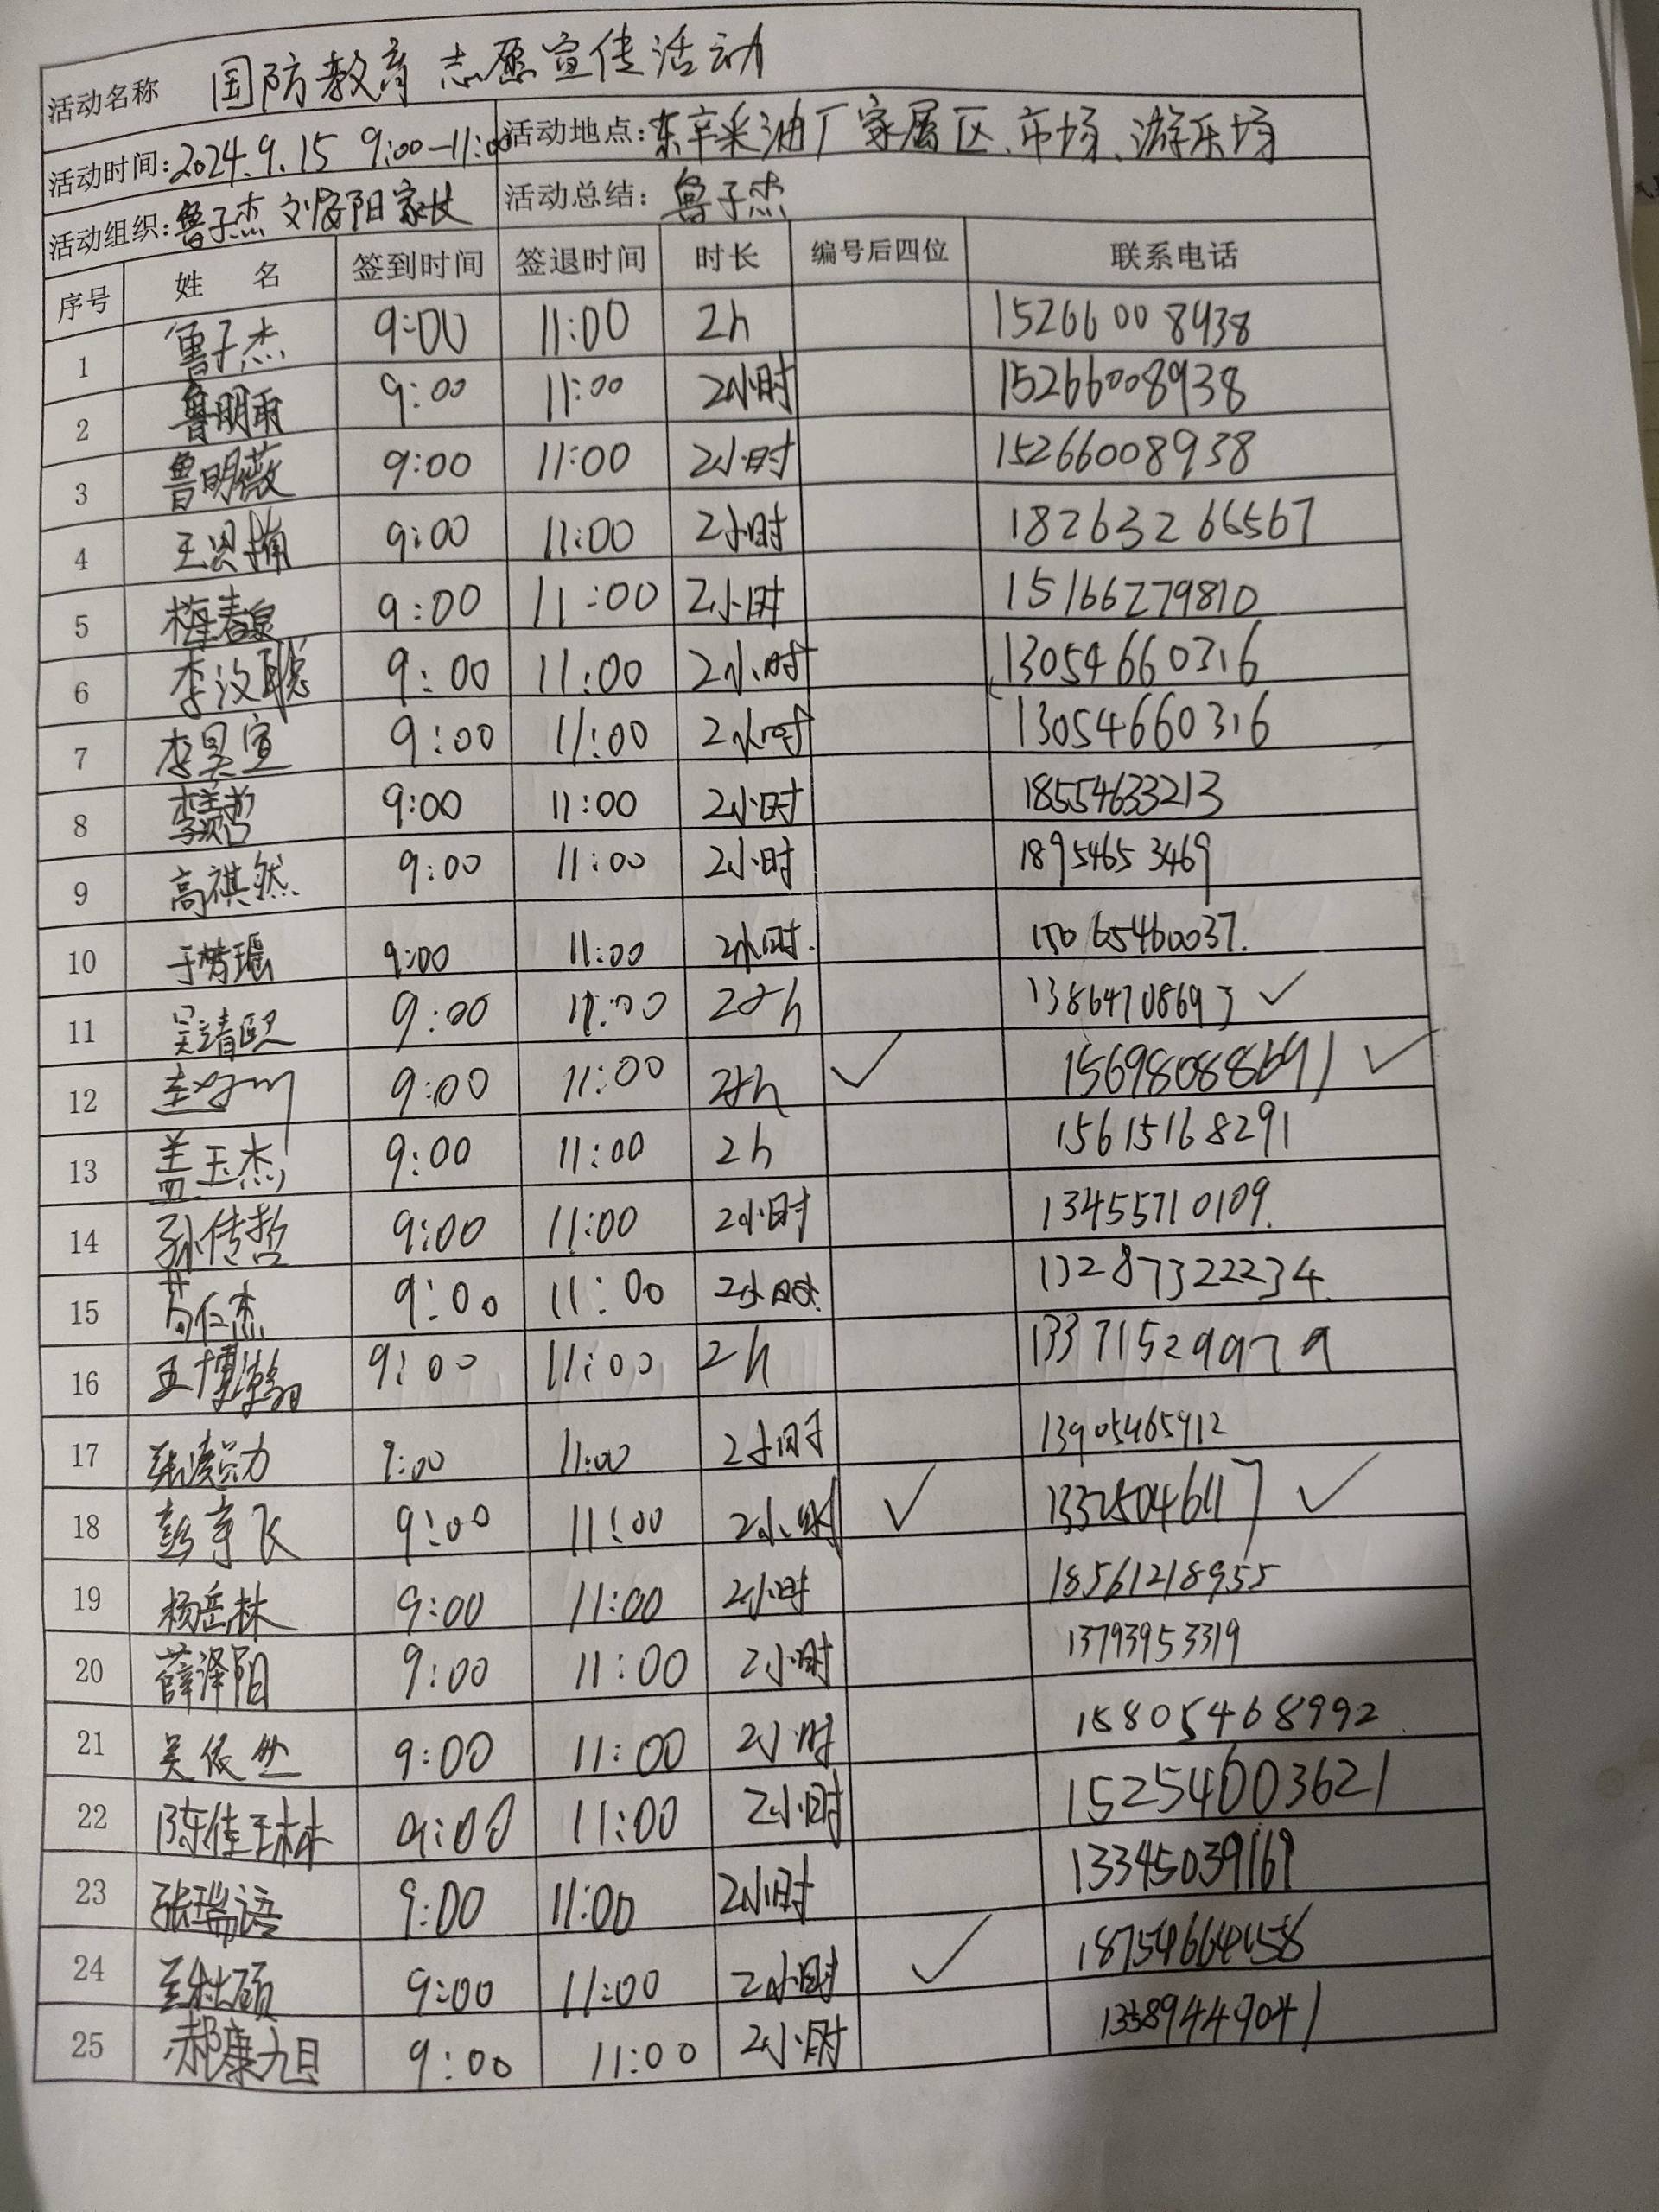 活动名称 国防教育志愿宣传活动
活动时间:2024.9.15 9:00-11:00 活动地点:东辛采油厂家属区、市场、游乐场
活动组织:鲁子杰 刘洛阳家长 活动总结:鲁子杰
序号 姓 名 签到时间 签退时间 时长 编号后四位 联系电话
1 鲁子杰 9:00 11:00 2h 15266008938
2 鲁明雨 9:00 11:00 2小时 15266008938
3 鲁明薇 9:00 11:00 2小时 15266008938
4 王思楠 9:00 11:00 2小时 18263266567
5 梅春泉 9:00 11:00 2小时 15166279810
6 李汶聪 9:00 11:00 2小时 13054660316
7 李昊宣 9:00 11:00 2小时 13054660316
8 9:00 11:00 2小时 18554633213
9 高祺然 9:00 11:00 2小时 18954653469
10 于梦瑶 9:00 11:00 2小时. 15065460037.
11 吴靖熙 9:00 11:00 2h ✓
12 9:00 11:00 2h ✓ 15698088691 ✓
13 盖玉杰 9:00 11:00 2h 15615168291
14 孙传哲 9:00 11:00 2小时 13455710109.
15 苟仁杰 9:00 11:00 2小时. 13287322234.
16 王博瀚 9:00 11:00 2h 13371529979
17 9:00 11:00 2小时 13905465912
18 彭宇飞 9:00 11:00 2小时 ✓ ✓
19 杨岳林 9:00 11:00 2小时 18561218955
20 薛泽阳 9:00 11:00 2小时 13793953319
21 吴依丛 9:00 11:00 2小时 15805468992
22 陈佳琳 9:00 11:00 2小时 15254003621
23 张瑞语 9:00 11:00 2小时 13345039169
24 9:00 11:00 2小时 ✓
25 郝康旭 9:00 11:00 2小时 13389449041